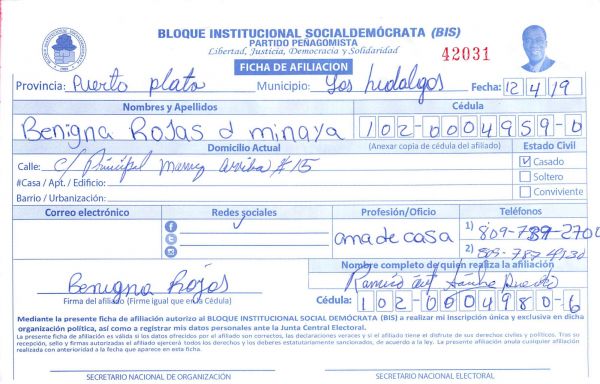 BLOQUE INSTITUCIONAL SOCIALDEMÓCRATA (BIS)
PARTIDO PEÑAGOMISTA
Libertad, Justicia, Democracia y Solidaridad
42031
FICHA DE AFILIACION
Provincia: Puerto plata Municipio: Los hidalgos Fecha: 12 4 19
Nombres y Apellidos Cédula
Benigna Rojas d minaya 102-0004959-0
Domicilio Actual (Anexar copia de cédula del afiliado) Estado Civil
Calle: c/ Principal arriba # 15 Casado
#Casa / Apt. / Edificio: Soltero
Barrio / Urbanización: Conviviente
Correo electrónico Redes sociales Profesión/Oficio Teléfonos
ama de casa 1) 809-789-2700
2) 809-787-4930
Nombre completo de quien realiza la afiliación
Benigna Rojas Ramiro
Firma del afiliado (Firme igual que en la Cédula) Cédula: 102-0004980-6
Mediante la presente ficha de afiliación autorizo al BLOQUE INSTITUCIONAL SOCIAL DEMÓCRATA (BIS) a realizar mi inscripción única y exclusiva en dicha
organización política, así como a registrar mis datos personales ante la Junta Central Electoral.
La presente ficha de afiliación es válida si los datos ofrecidos por el afiliado son correctos, las declaraciones veraces y si el afiliado tiene el disfrute de sus derechos civiles y políticos. Tras su
recepción, sello y firmas autorizadas el afiliado ejercerá todos los derechos y los deberes estatutariamente sancionados, de acuerdo a la ley. La presente afiliación anula cualquier afiliación
realizada con anterioridad a la fecha que aparece en esta ficha.
SECRETARIO NACIONAL DE ORGANIZACIÓN SECRETARIO NACIONAL ELECTORAL